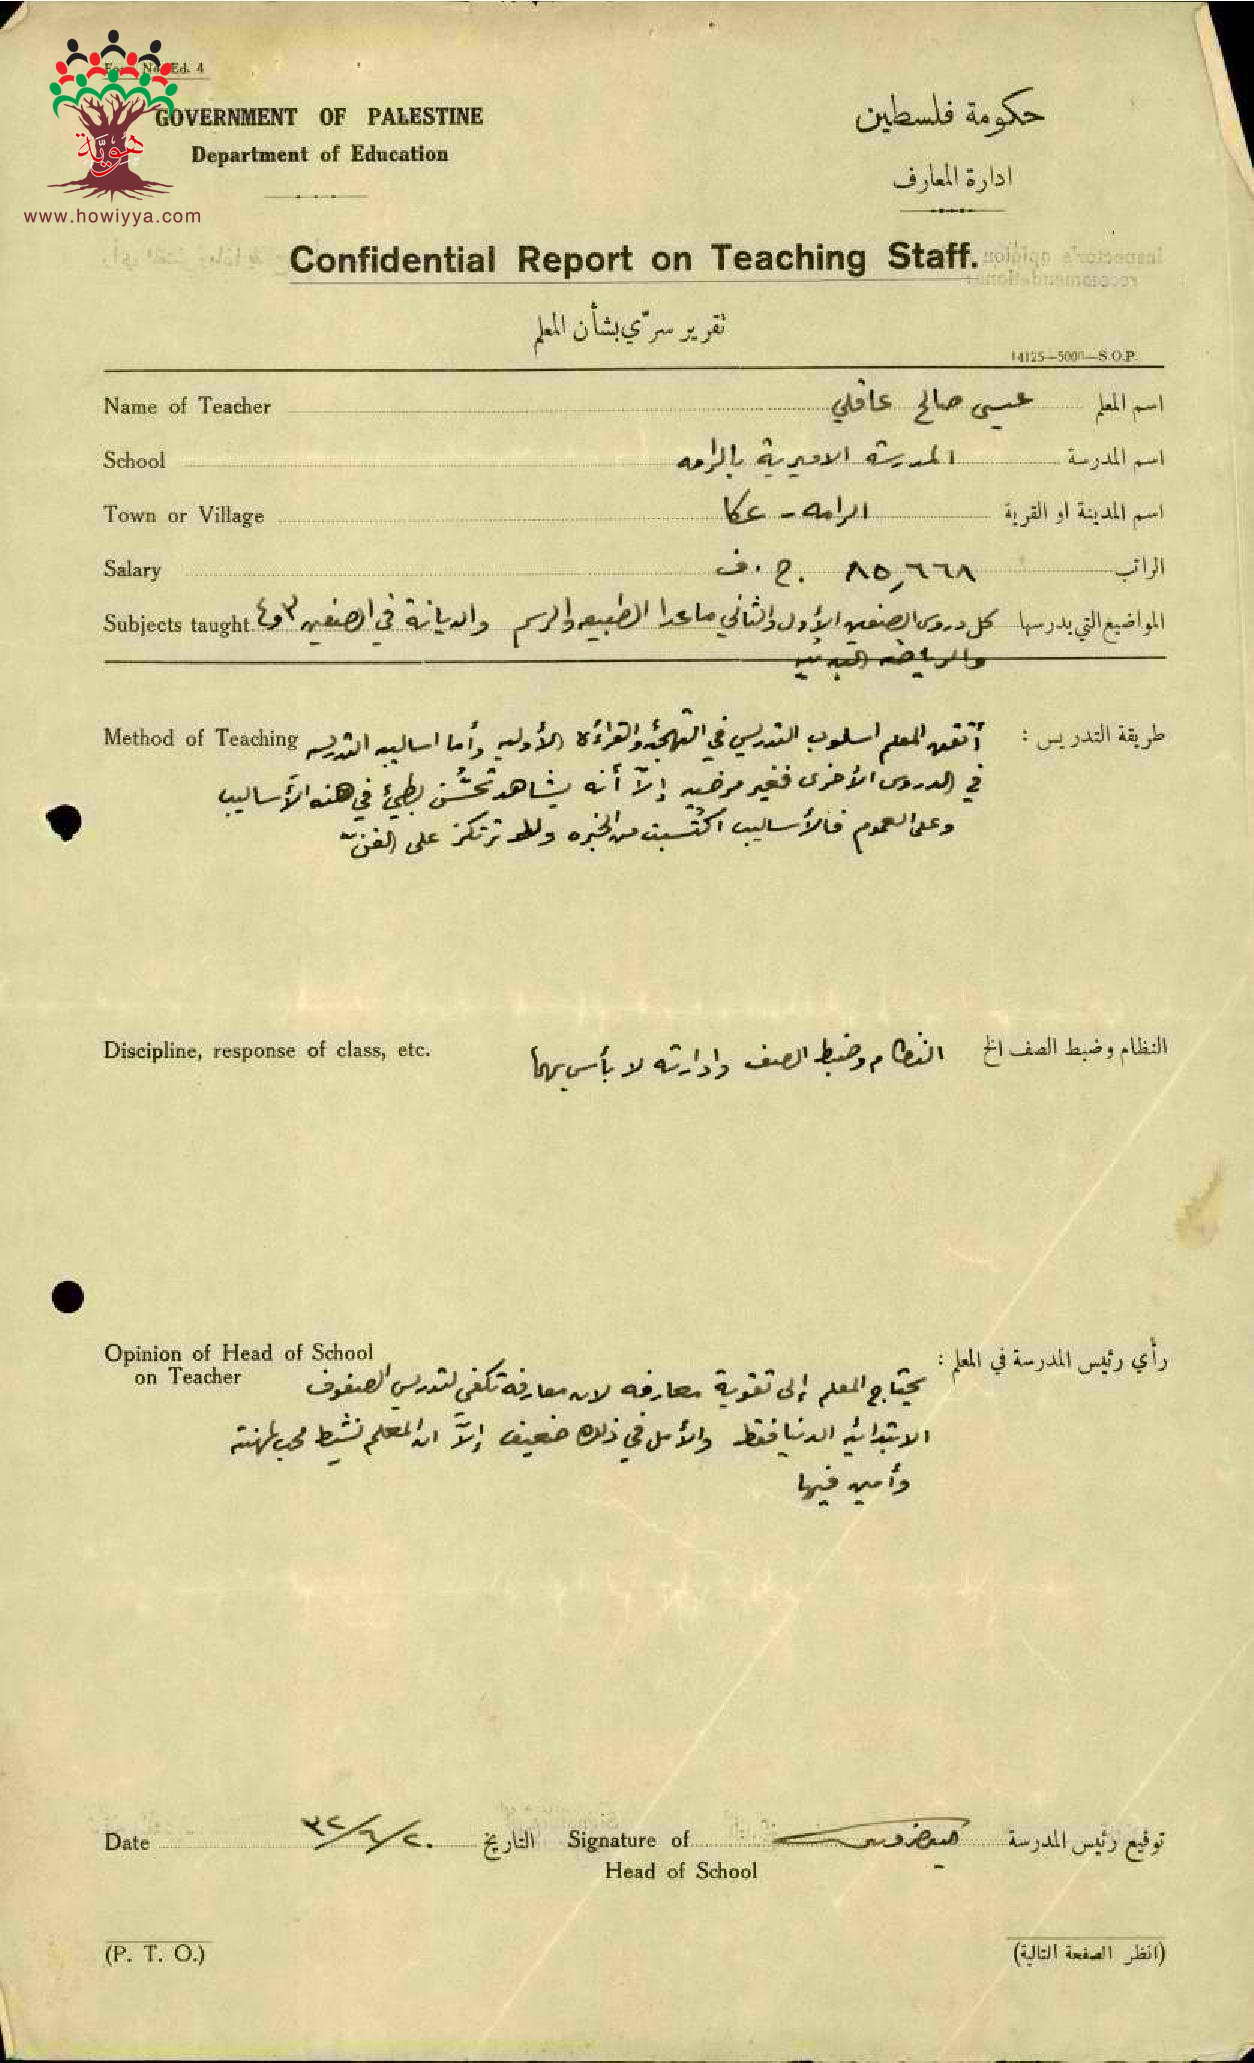 Form No. Ed. 4
هوية
www.howiyya.com
GOVERNMENT OF PALESTINE
Department of Education
حكومة فلسطين
ادارة المعارف
Confidential Report on Teaching Staff.
تقرير سرّي بشأن المعلم
14125—5000—S.O.P.
Name of Teacher عيسى صالح عاقلي اسم المعلم
School المدرسة الاميرية بالرامه اسم المدرسة
Town or Village الرامه - عكا اسم المدينة او القرية
Salary ٨٥,٦٦٨ ج.ف الراتب
Subjects taught كل دروس الصفين الأول والثاني ماعدا الطبيعه والرسم والديانة في الصفين ٣ و٤ المواضيع التي يدرسها
والرياضه البدنيه
Method of Teaching أتقن المعلم اسلوب التدريس في التهجئه والقراءة الأوليه وأما اساليب التدريس طريقة التدريس :
في الدروس الأخرى فغير مرضيه إلاّ أنه يشاهد تحسُّن بطيئ في هذه الأساليب
وعلى العموم فالأساليب اكتُسبت من الخبره ترتكز على الفنّ
Discipline, response of class, etc. النظام وضبط الصف وادارته لا بأس بهما النظام وضبط الصف الخ
Opinion of Head of School
on Teacher
رأي رئيس المدرسة في المعلم :
يحتاج المعلم إلى تقوية معارفه لان معارفه تكفي لتدريس الصفوف
الابتدائيه الدنيا فقط والأمل في ذلك ضعيف إلاَّ ان المعلم نشيط محب لمهنته
وأمين فيها
Date ٢٠/٦/٣٢ التاريخ Signature of توقيع رئيس المدرسة
Head of School
(P. T. O.) (انظر الصفحة التالية)